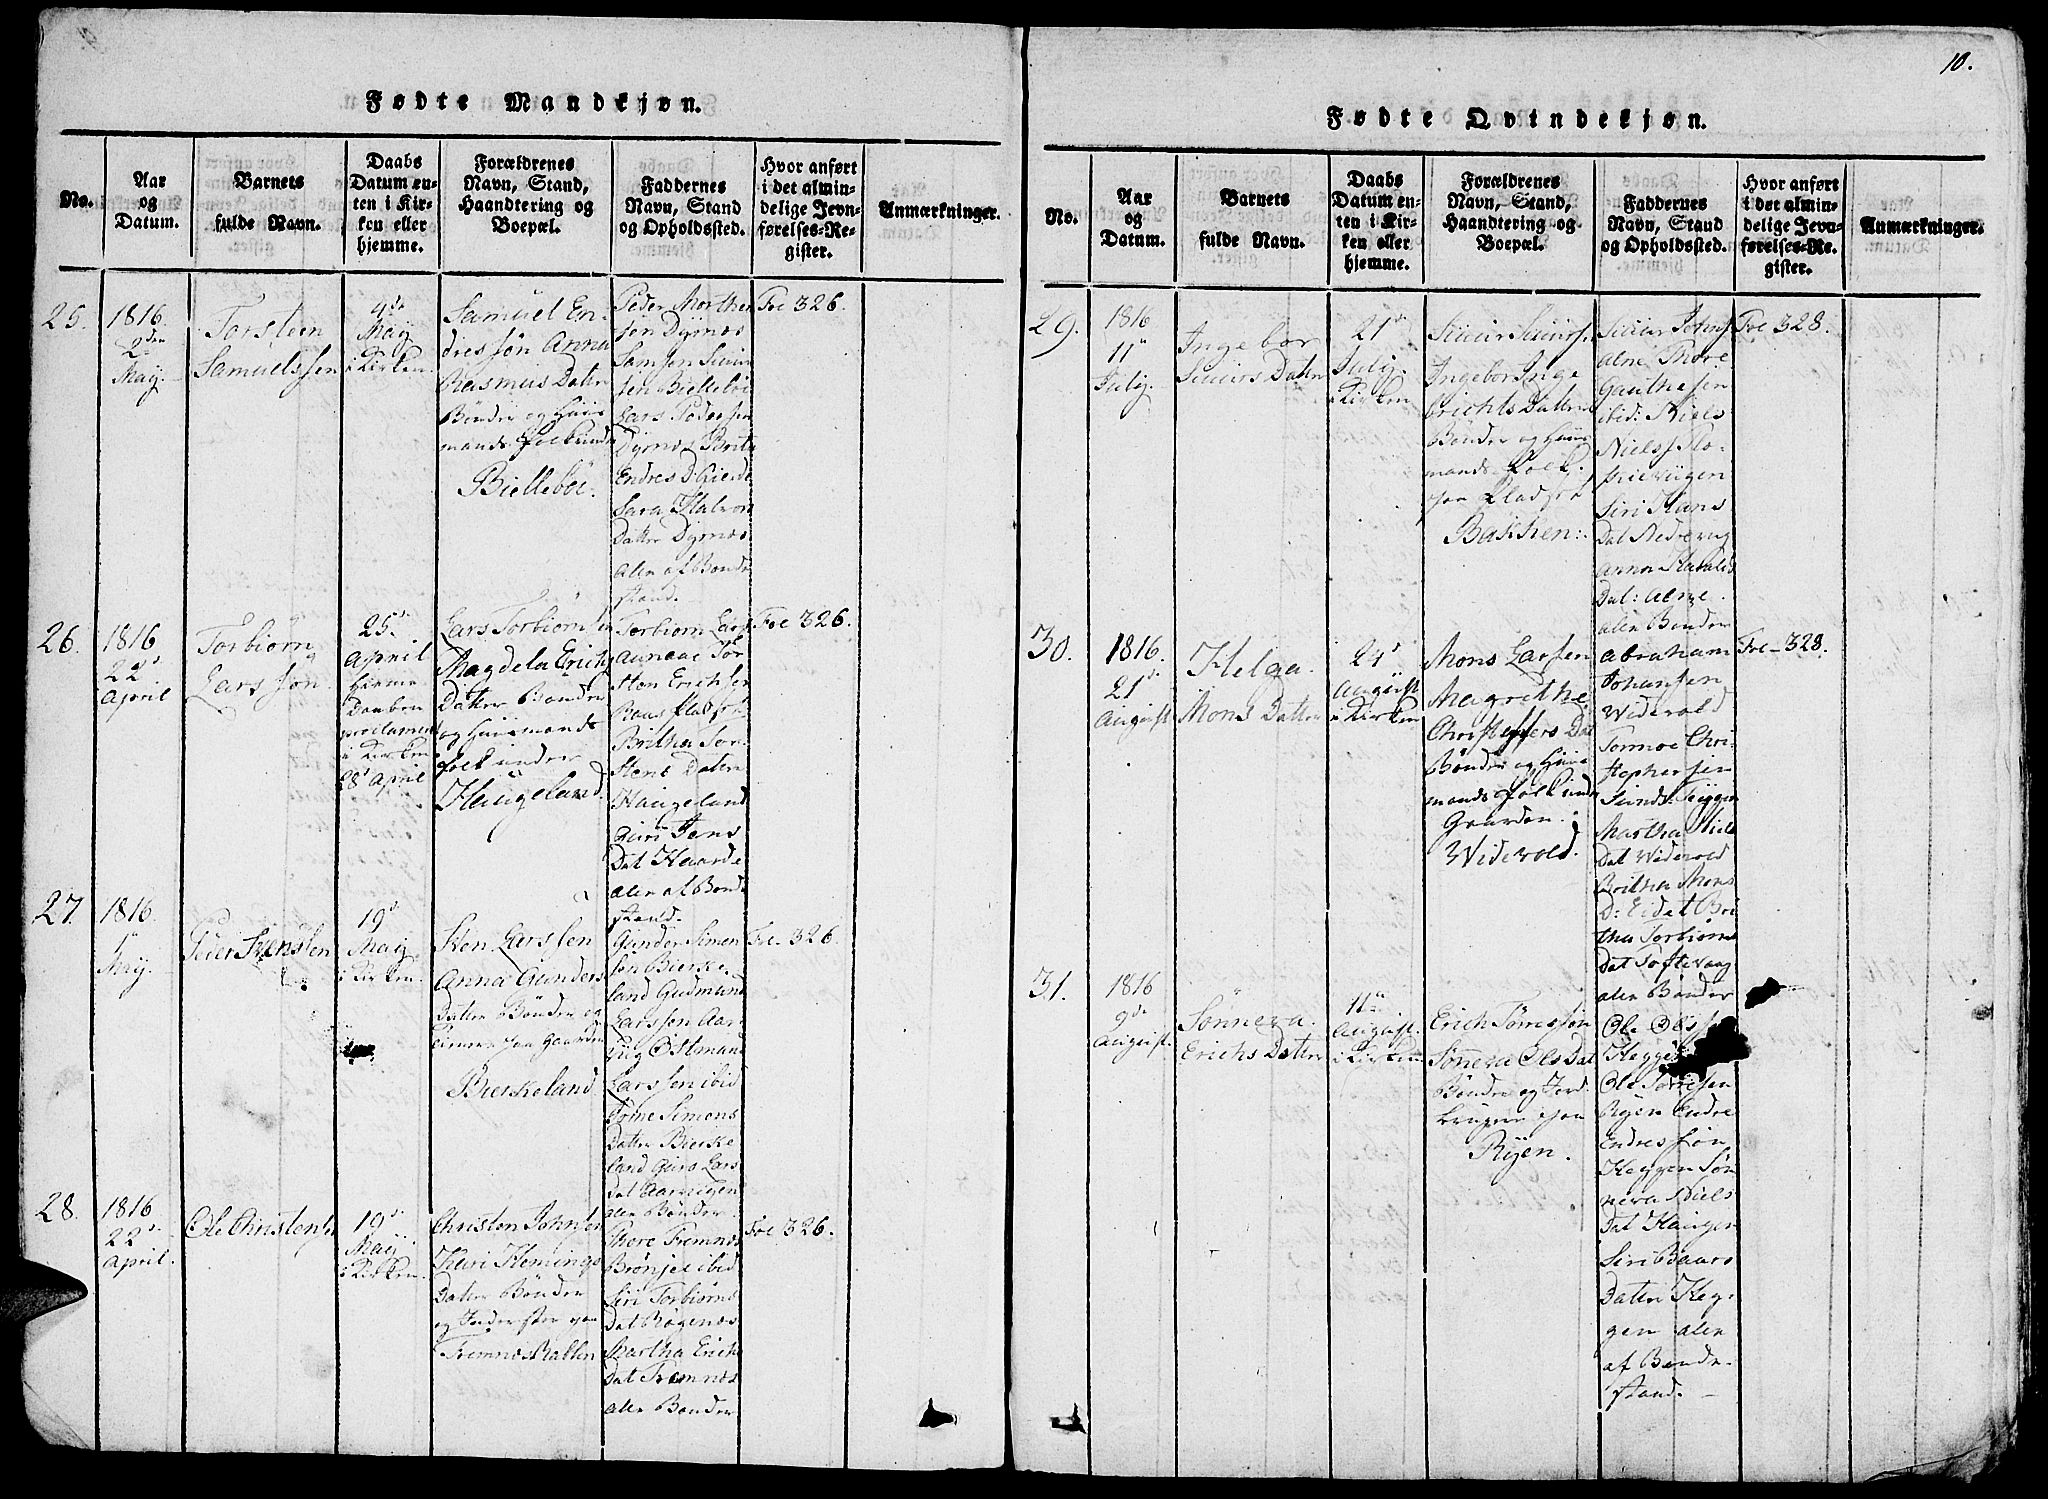 10.
Fødte Mandkjøn.
No.
Aar
og
Datum.
Barnets
fulde Navn.
Daabs
Datum en-
ten i Kir-
ken eller
hjemme.
Forældrenes
Navn, Stand,
Haandtering og
Boepæl.
Faddernes
Navn, Stand
og Opholdssted.
Hvor anført
i det almin-
delige Jevn-
førelses-Re-
gister.
Anmærkninger.
25.
1816
2den
May.
Torsteen
Samuelssen
9de
Maÿ
i Kirken.
Samuel En-
dressøn Anna
Rasmus Datter
Bönder og Huus
mands folk under
Bielleböe.
Peder Morthen
sen Dyrnes
Samson
sen Bielleböe
Lars Pedersen
Dyrnes Berita
Endres D:
Sara Halvor
Datter Dyrnes
alle af Bonde
stand.
Foe 326.
26.
1816
22de
April
Torbiörn
Lars søn
25de
April
Hiemme
Daaben
i Kirken
28de April
Lars Torbiørnsen
Magdela Erichs
Datter Bönder
og Huusmands
folk under
Haügeland.
Torbiørn Lars
Aunaae Tor
sten Erichsen
Britha Tor
stens Datter
Haugeland
Guri Jens
Dat Haarde
alle af Bonde
stand.
Foe 326.
27.
1816.
May.
Peder Svensøn
19de
Maÿ
i Kirken.
Sven Larssen
Anna Gunders
Datter Bönder og
Gaarden
Bierkeland
Gunder Simon
søn Bierke
land Gudmund
Larssen Aar-
vug Östmand
Larssen ibid
Tørne Simons
Datter Bierke
land Guro Lars
Dat Aarvigen
alle Bönder.
Foe. 326.
28.
1816
22de
April.
Ole Christens
19de
Maÿ
i Kirken.
Christen Johnsen
Kari Flemings
Datter Bönder
og Inderster paa
Fremnes Batten
Thore Fremnes
Brönjel ibid
Siri Torbiörns
Dat Bøgenes
Martha Erichs
Dat Fremnes
alle Bönder
Foe 326.
Fødte Qvindekjøn.
No.
Aar
og
Datum.
Barnets
fulde Navn.
Daabs
Datum en-
ten i Kir-
ken eller
hjemme.
Forældrenes
Navn, Stand,
Haandtering og
Boepæl.
Faddernes
Navn, Stand
og Opholdssted.
Hvor anført
i det almin-
delige Jevn-
førelses-Re-
gister.
Anmærkninger.
29.
1816
11te
Julÿ.
Ingebor
Siuurs Datter
21de
Julÿ.
i Kirken
Siuur Siuursen
Ingebor Inge
brichts Datter
Bönder og Huus
mands Folk.
paa Pladsen
Bakken:.
Siuur Johns
alne Thore
Gauthesen
ibid: Niels
Niels
Siri Hans
Dat
Anna Haralds
Dat: alne.
alle Bönder
Foe 328.
30.
1816.
21de
August
Helga
Mons Datter
24de
August
i Kirken
Mons Larsen
Magrethe
Christophers Dat
Bönder og Huus
mands folk under
Gaarden.
Widevold.
Abraham
Johansen
Widevold
Tormoe Chri-
stophersen
Martha Niels
Dat Widevold
Britha Mons
D: Eidet Bri
tha Torbiørns
Dat Toftevaag
alle Bönder
Foe 328.
31.
1816
9de
August.
Sönneva.
Erichs Datter
11te
August.
i Kirken
Erich Tørresøn
Sönneva Ols Dat
Bönder og Jord
brugere paa
Rÿen.
Ole Olss
Hegge
Ole Tørresen
Ryen Endre
Endressøn
Heggen Søn
neva Niels
Dat Haugen
Siri Baars
Datter Heg-
gen alle
af Bonde
stand.